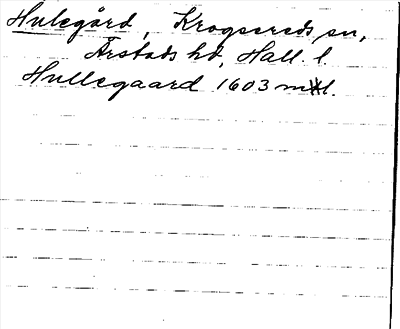 Hulegård, Krogsereds sn,
Årstads hd, Hall. l.
Hullegaard 1603 mtl.